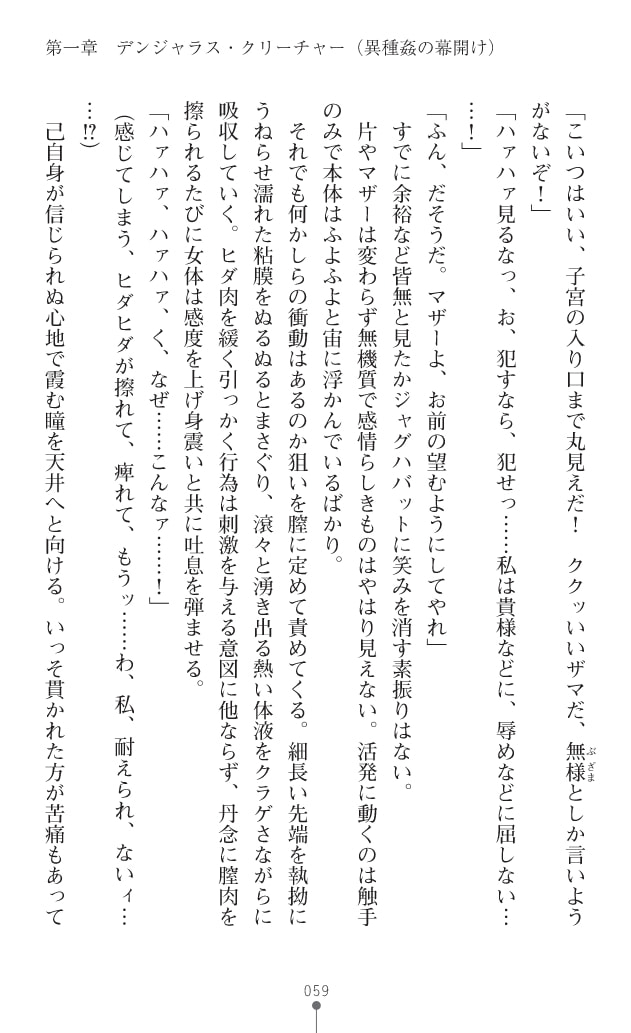 第一章　デンジャラス・クリーチャー（異種姦の幕開け）
「こいつはいい、子宮の入り口まで丸見えだ！　ククッいいザマだ、無様としか言いよう
ぶざま
がないぞ！」
「ハァハァ見るなっ、お、犯すなら、犯せっ……私は貴様などに、辱めなどに屈しない…
…！」
「ふん、だそうだ。マザーよ、お前の望むようにしてやれ」
すでに余裕など皆無と見たかジャグハバットに笑みを消す素振りはない。
片やマザーは変わらず無機質で感情らしきものはやはり見えない。活発に動くのは触手
のみで本体はふよふよと宙に浮かんでいるばかり。
それでも何かしらの衝動はあるのか狙いを膣に定めて責めてくる。細長い先端を執拗に
うねらせ濡れた粘膜をぬるぬるとまさぐり、滾々と湧き出る熱い体液をクラゲさながらに
吸収していく。ヒダ肉を緩く引っかく行為は刺激を与える意図に他ならず、丹念に膣肉を
擦られるたびに女体は感度を上げ身震いと共に吐息を弾ませる。
「ハァハァ、ハァハァ、く、なぜ……こんなァ……！」
（感じてしまう、ヒダヒダが擦れて、痺れて、もうッ……わ、私、耐えられ、ないィ…
…!?）
己自身が信じられぬ心地で霞む瞳を天井へと向ける。いっそ貫かれた方が苦痛もあって
059